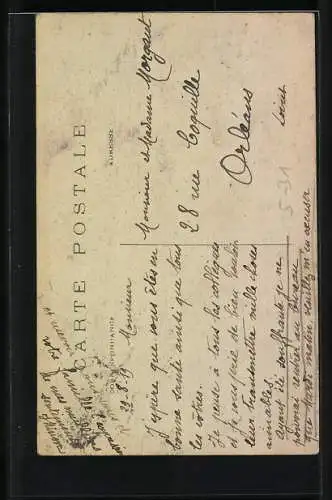 CARTE POSTALE
CORRESPONDANCE
ADRESSE
Monsieur
J'espère que vous êtes en
bonne santé ainsi que tous
les vôtres.
Je pense à tous les collègues
et je vous prie de bien vouloir
leur transmettre mille choses
aimables.
ayant été souffrante je ne
pourrai rentrer au bureau
que mardi matin veuillez m'en excuser
Monsieur et Madame Morgaut
28 rue Coquille
Orléans
Loiret
5-31